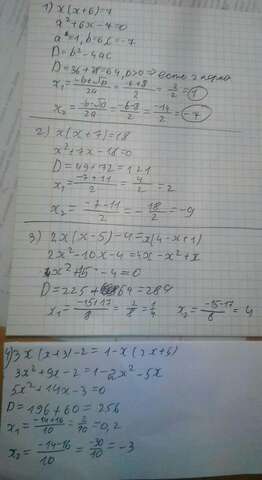 1) x(x+6)=7
x²+6x-7=0
a=1, b=6 c=-7
D=b²-4ac
D=36+28=64, D>0 ⇒ есть 2 корня
x₁ = (-b+√D)/2a = (-6+8)/2 = 2/2 = 1
x₂ = (-b-√D)/2a = (-6-8)/2 = -14/2 = -7
2) x(x+7)=18
x²+7x-18=0
D=49+72=121
x₁ = (-7+11)/2 = 4/2 = 2
x₂ = (-7-11)/2 = -18/2 = -9
3) 2x(x-5)-4=x(4-x+1)
2x²-10x-4=4x-x²+x
x²+15-4=0
D=225+64=289
x₁ = (-15+17)/8 = 2/8 = 1/4 x₂ = (-15-17)/8 = 4
4) 3x(x+3)-2=1-x(2x+5)
3x²+9x-2=1-2x²-5x
5x²+14x-3=0
D=196+60=256
x₁ = (-14+16)/10 = 2/10 = 0,2
x₂ = (-14-16)/10 = -30/10 = -3